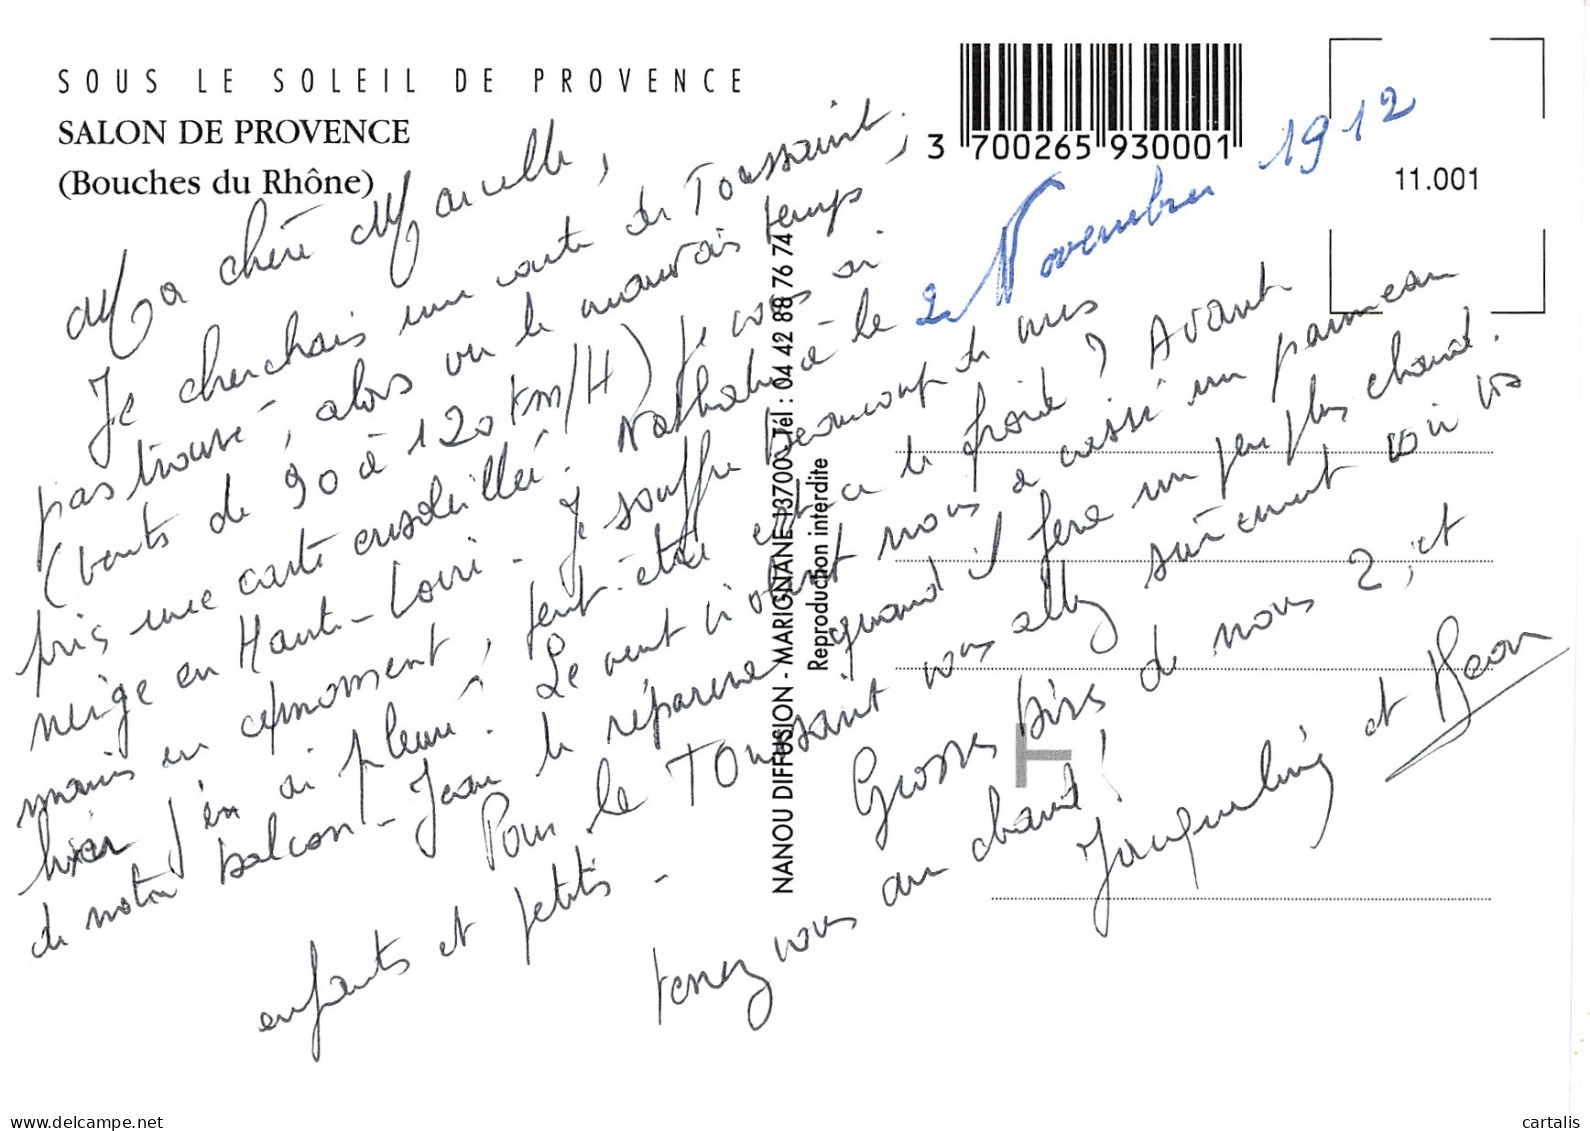 SOUS LE SOLEIL DE PROVENCE
SALON DE PROVENCE
(Bouches du Rhône)
3 700265 930001
11.001
2 Novembre 1912
Ma chère Marcelle,
Je cherchais une carte de Toussaint,
pas trouvé, alors vu le mauvais temps
(vents de 90 à 120 km/H) je vous ai
pris une carte ensoleillée. Nathalie à le
neige en Haute-Loire - Je souffre beaucoup de mes
mains en ce moment, peut-être est-ce le froid ? Avant
hier j'en ai pleuré. Le vent violent nous a cassé un panneau
de notre balcon - Jean le réparera quand il fera un peu plus chaud.
Pour le Toussaint vous allez sûrement voir vos
enfants et petits -
Grosses bises de nous 2, et
tenez vous au chaud !
Jacqueline et Jean
NANOU DIFFUSION - MARIGNANE 13700 - Tél : 04 42 88 76 74
Reproduction interdite
T
delcampe.net
cartalis